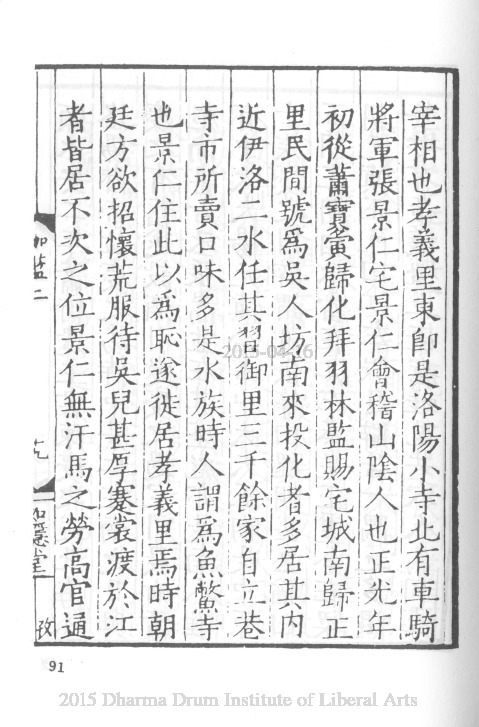 宰相也孝義里東卽是洛陽小寺北有車騎
將軍張景仁宅景仁會稽山陰人也正光年
初從蕭寶夤歸化拜羽林監賜宅城南歸正
里民間號爲吳人坊南來投化者多居其內
近伊洛二水任其習御里三千餘家自立巷
寺市所賣口味多是水族時人謂爲魚鱉寺
也景仁住此以爲恥遂徙居孝義里焉時朝
廷方欲招懷荒服待吳兒甚厚蹇裳渡於江
者皆居不次之位景仁無汗馬之勞高官通
91
2015 Dharma Drum Institute of Liberal Arts